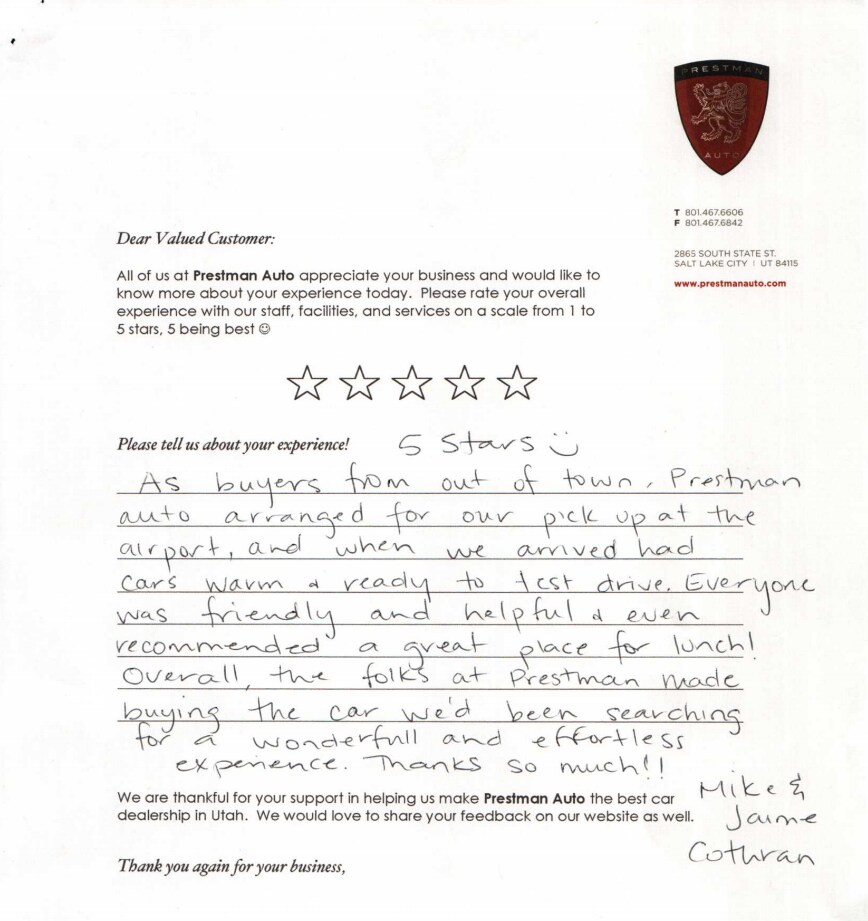 PRESTMAN
AUTO
T 801.467.6606
F 801.467.6842
2865 SOUTH STATE ST.
SALT LAKE CITY | UT 84115
www.prestmanauto.com
Dear Valued Customer:
All of us at Prestman Auto appreciate your business and would like to
know more about your experience today. Please rate your overall
experience with our staff, facilities, and services on a scale from 1 to
5 stars, 5 being best ☺
Please tell us about your experience! 5 Stars ☺
As buyers from out of town, Prestman
auto arranged for our pick up at the
airport, and when we arrived had
cars warm & ready to test drive. Everyone
was friendly and helpful & even
recommended a great place for lunch!
Overall, the folks at Prestman made
buying the car we'd been searching
for a wonderfull and effortless
experience. Thanks so much!!
Mike &
Jaime
Cothran
We are thankful for your support in helping us make Prestman Auto the best car
dealership in Utah. We would love to share your feedback on our website as well.
Thank you again for your business,